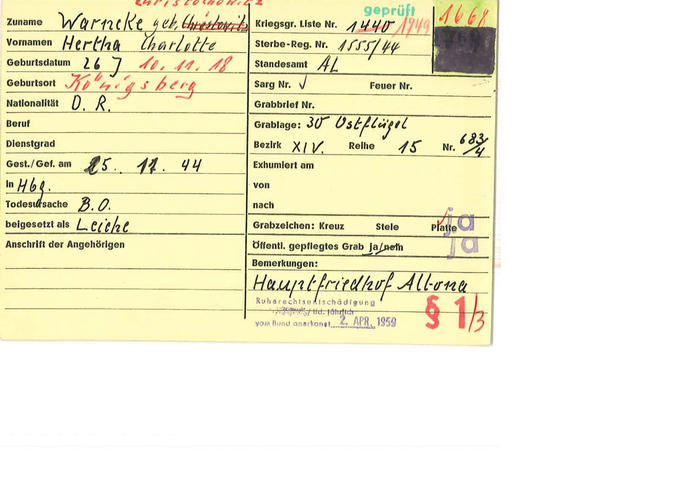 Zuname Warncke geb. Christowitz
Vornamen Hertha Charlotte
Geburtsdatum 26 J 10. 11. 18
Geburtsort Königsberg
Nationalität D. R.
Beruf
Dienstgrad
Gest./Gef. am 25. 11. 44
in Hbg.
Todesursache B.O.
beigesetzt als Leiche
Anschrift der Angehörigen
geprüft
Kriegsgr. Liste Nr. 1440 1949
1668
Sterbe-Reg. Nr. 1555/44
Standesamt AL
Sarg Nr. Feuer Nr.
Grabbrief Nr.
Grablage: 30 Ostflügel
Bezirk XIV. Reihe 15 Nr. 683/4
Exhumiert am
von
nach
Grabzeichen: Kreuz Stele Platte ja
Öffentl. gepflegtes Grab ja/nein ja
Bemerkungen:
Hauptfriedhof Altona
Ruherechtsentschädigung
lfd. jährlich
vom Bund anerkannt 2. APR. 1959
§ 1/3